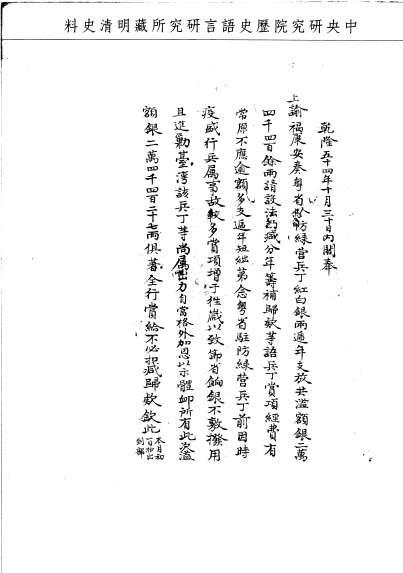 中央研究院歷史語言研究所藏明清史料
乾隆五十四年十月三十日內閣奉
上諭福康安奏粵省駐防綠營兵丁紅白銀兩遞年支放共溢額銀二萬
四千四百餘兩請設法扣減分年籌補歸款等語兵丁賞項經費有
常原不應逾額多支遞年短絀第念粵省駐防綠營兵丁前因時
疫盛行兵屬事故較多賞項增于往歲以致節省餉銀不敷撥用
且進勦臺灣該兵丁等尚屬出力自當格外加恩以示體卹所有此次溢
額銀二萬四千四百二十七兩俱著全行賞給不必扣減歸款欽此
本月初
百抄出
到部